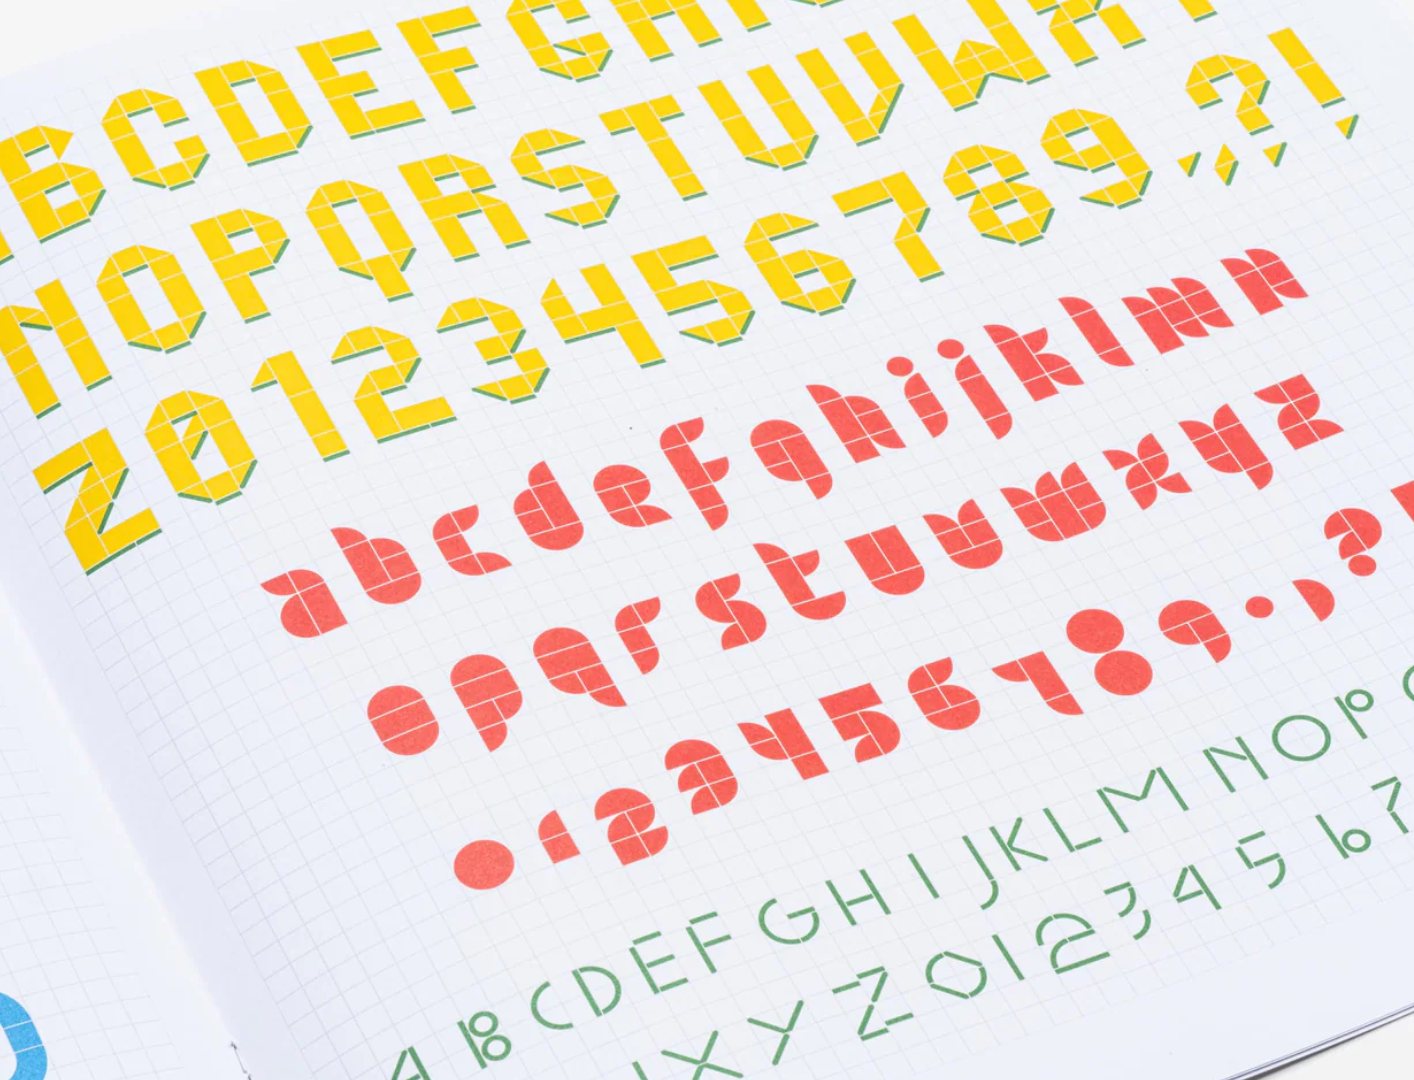 BCDEFGH
NOPQRSTUVWXY
Z0123456789.,?!
abcdefghijklmn
opqrstuvwxyz
0123456789.,?
ABCDEFGHIJKLMNOP
XYZ01234567